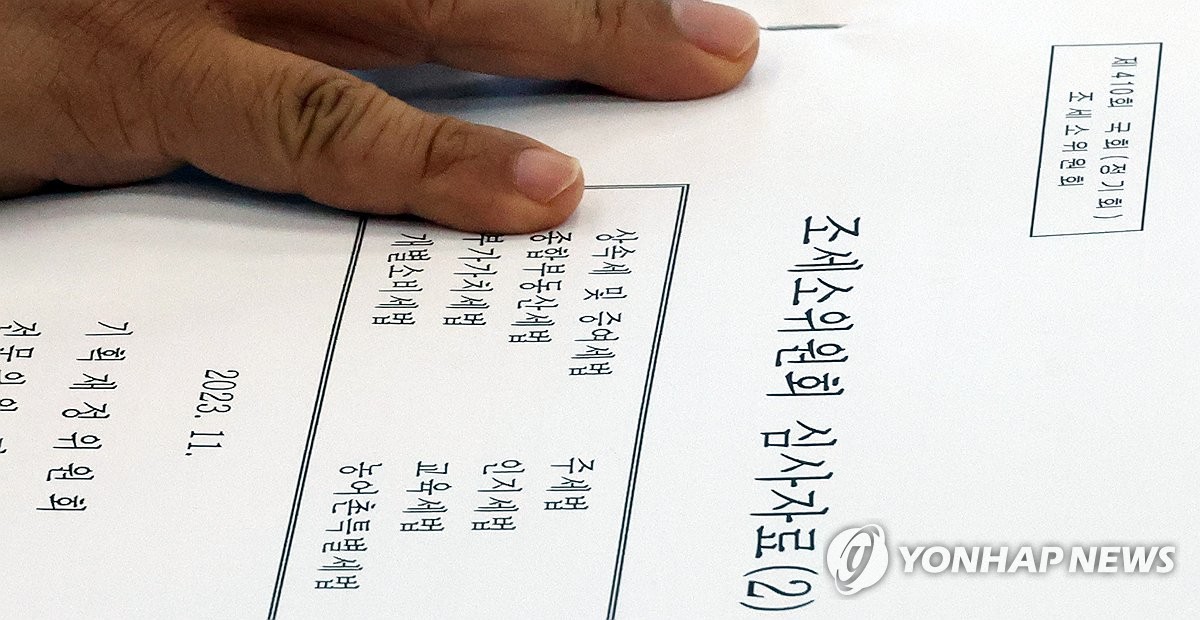 제410회 국회(정기회)
조세소위원회
조세소위원회 심사자료(2)
상속세 및 증여세법
종합부동산세법
부가가치세법
개별소비세법
주세법
인지세법
교육세법
농어촌특별세법
2023. 11.
기획재정위원회
전문위원
YONHAP NEWS